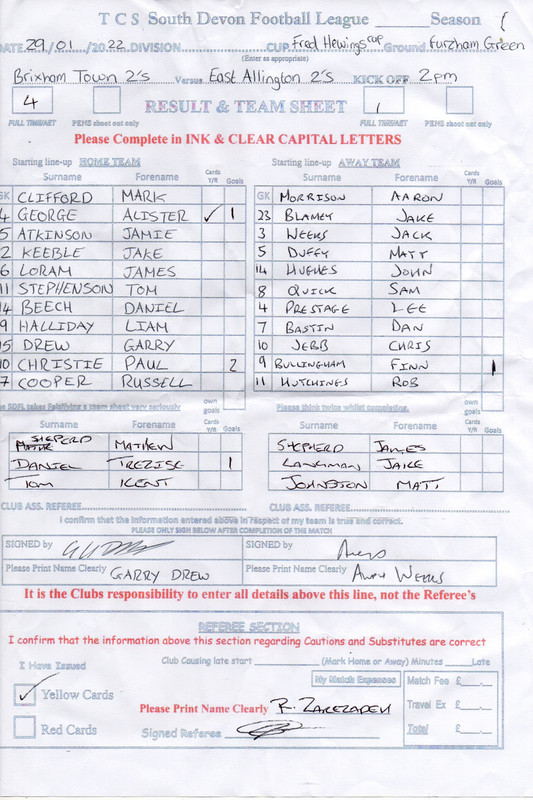 TCS South Devon Football League ______ Season (
DATE 29/01/2022 DIVISION CUP Fred Hewings cup Ground Furzham Green
(Enter as appropriate)
Brixham Town 2's Versus East Allington 2's KICK OFF 2pm
4 RESULT & TEAM SHEET 1
FULL TIME/AET PENS shoot out only FULL TIME/AET PENS shoot out only
Please Complete in INK & CLEAR CAPITAL LETTERS
Starting line-up HOME TEAM Cards Starting line-up AWAY TEAM Cards
Surname Forename Y/R Goals Surname Forename Y/R Goals
GK CLIFFORD MARK GK MORRISON AARON
4 GEORGE ALISTER ✓ 1 23 BLAMEY JAKE
5 ATKINSON JAMIE 3 WEEKS JACK
2 KEEBLE JAKE 5 DUFFY MATT
6 LORAM JAMES 14 HUGHES JOHN
11 STEPHENSON TOM 8 QUICK SAM
14 BEECH DANIEL 4 PRESTAGE LEE
9 HALLIDAY LIAM 7 BASTIN DAN
15 DREW GARRY 10 JEBB CHRIS
10 CHRISTIE PAUL 2 9 BULLINGHAM FINN 1
7 COOPER RUSSELL 11 HUTCHINGS ROB
The SDFL takes Falsifying a team sheet very seriously own goals Please think twice whilst completing. own goals
Surname Forename Cards Y/R Goals Surname Forename Cards Y/R Goals
SHEPERD MATHEW SHEPHERD JAMES
DANIEL TREZISE 1 LANGMAN JAKE
TOM KENT JOHNSTON MATT
CLUB ASS. REFEREE CLUB ASS. REFEREE
I confirm that the information entered above in respect of my team is true and correct.
PLEASE ONLY SIGN BELOW AFTER COMPLETION OF THE MATCH
SIGNED by SIGNED by
Please Print Name Clearly GARRY DREW Please Print Name Clearly WEEKS
It is the Clubs responsibility to enter all details above this line, not the Referee's
REFEREE SECTION
I confirm that the information above this section regarding Cautions and Substitutes are correct
I Have Issued Club Causing late start ______ (Mark Home or Away) Minutes ____Late
✓ Yellow Cards My Match Expenses Match Fee £__.__
Please Print Name Clearly R. ZAREZADEH Travel Ex £__.__
Red Cards Signed Referee Total £__.__